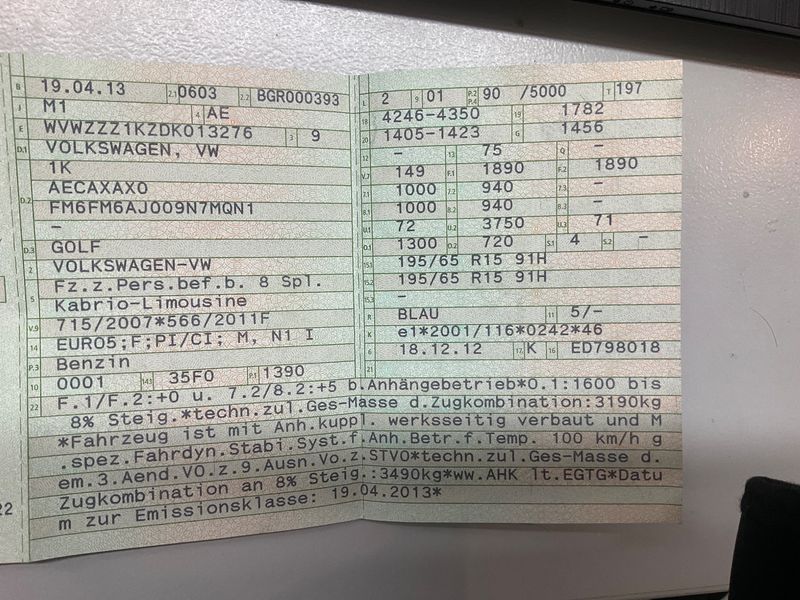 B 19.04.13 2.1 0603 2.2 BGR000393
J M1 4 AE
E WVWZZZ1KZDK013276 3 9
D.1 VOLKSWAGEN, VW
1K
D.2 AECAXAX0
FM6FM6AJ009N7MQN1
–
D.3 GOLF
2 VOLKSWAGEN-VW
Fz.z.Pers.bef.b. 8 Spl.
5 Kabrio-Limousine
V.9 715/2007*566/2011F
14 EURO5;F;PI/CI; M, N1 I
P.3 Benzin
10 0001 14.1 35F0 P.1 1390
L 2 9 01 P.2 P.4 90 /5000 T 197
18 4246-4350 19 1782
20 1405-1423 G 1456
12 – 13 75 Q –
V.7 149 F.1 1890 F.2 1890
7.1 1000 7.2 940 7.3 –
8.1 1000 8.2 940 8.3 –
U.1 72 U.2 3750 U.3 71
O.1 1300 O.2 720 S.1 4 S.2 –
15.1 195/65 R15 91H
15.2 195/65 R15 91H
15.3 –
R BLAU 11 5/–
K e1*2001/116*0242*46
6 18.12.12 17 K 16 ED798018
21
22 F.1/F.2:+0 u. 7.2/8.2:+5 b.Anhängebetrieb*O.1:1600 bis
8% Steig.*techn.zul.Ges-Masse d.Zugkombination:3190kg
*Fahrzeug ist mit Anh.kuppl. werksseitig verbaut und M
.spez.Fahrdyn.Stabi.Syst.f.Anh.Betr.f.Temp. 100 km/h g
em.3.Aend.VO.z.9.Ausn.Vo.z.STVO*techn.zul.Ges-Masse d.
Zugkombination an 8% Steig.:3490kg*ww.AHK lt.EGTG*Datu
m zur Emissionsklasse: 19.04.2013*
22